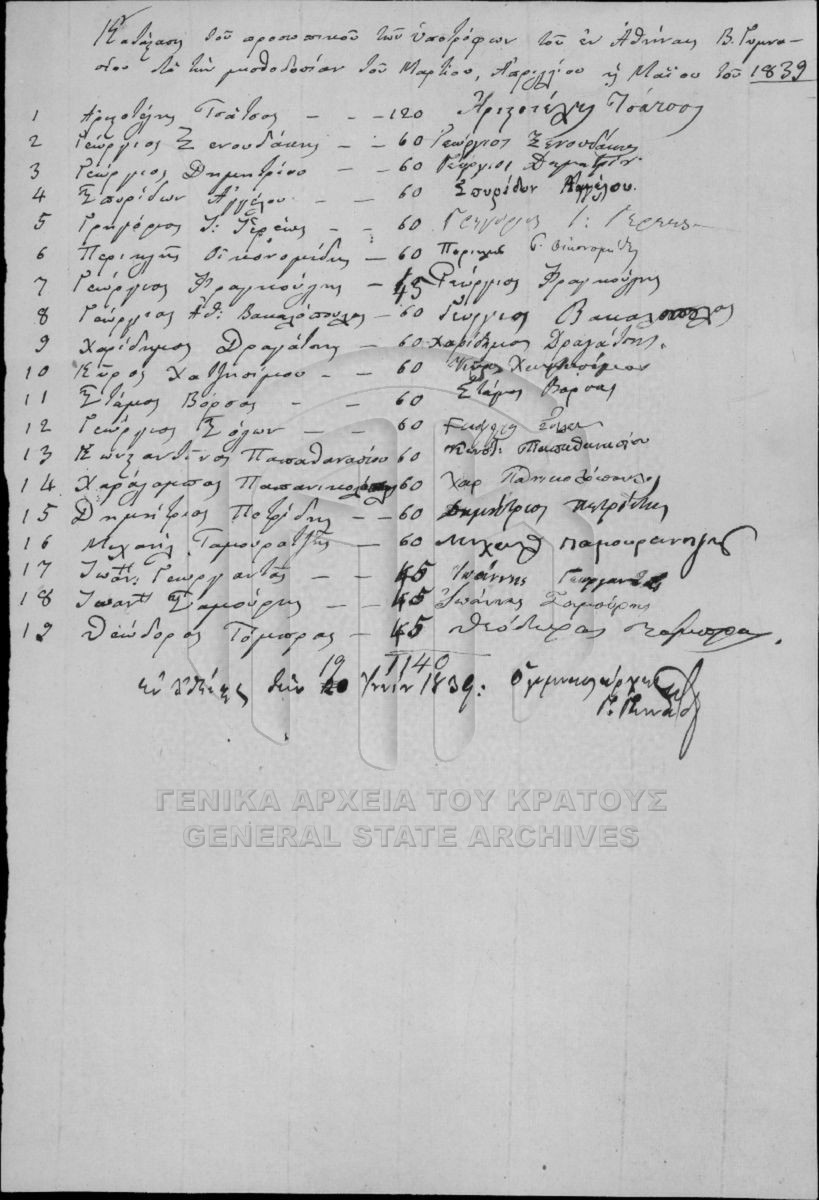 Κατάστασις τοῦ προσωπικοῦ τῶν ὑποτρόφων τοῦ ἐν Ἀθήναις Β. Γυμνα-
σίου διὰ τὴν μισθοδοσίαν τοῦ Μαρτίου, Ἀπριλλίου ἢ Μαΐου τοῦ 1839
1 Ἀριστοτέλης Τσάτσος - - - 120 Ἀριστοτέλης Τσάτσος
2 Γεώργιος Ξενουδάκης - - 60 Γεώργιος Ξενουδάκης
3 Γεώργιος Δημητρίου - - 60 Γεώργιος Δημητρίου
4 Σπυρίδων Ἀγγέλου - - 60 Σπυρίδων Ἀγγέλου.
5 Γρηγόριος Ἰ: Ἱερέως - - 60 Γρηγόριος Ἰ: Ἱερέως
6 Περικλῆς Οἰκονομίδης - 60 Περικλῆς Οἰκονομίδης
7 Γεώργιος Φραγκούλης - 45 Γεώργιος Φραγκούλης
8 Γεώργιος Ἀθ: Βακαλόπουλος - 60 Γεώργιος Βακαλοπουλος
9 Χαρίδημος Δραγάτσης - 60 Χαρίδημος Δραγάτσης.
10 Κῦρος Χατζησίμου - - 60 Κῦρος
11 Στάμος Βόρσας - - 60 Στάμος Βορσας
12 Γεώργιος Σόλων - - 60
13 Κωνσταντῖνος Παπαθανασίου 60 Κωνστ: Παπαθανασίου
14 Χαράλαμπος Παπανικολόπουλος 60 Χαρ
15 Δημήτριος Πετρίδης - - 60 Δημήτριος Πετρίδης
16 Μιχαὴλ - 60 Μιχαὴλ
17 Ἰωάν: Γεωργαντᾶς - - 45 Ἰωάννης Γεωργαντᾶς
18 Ἰωάν Σαμούρης - - 45 Ἰωάννης Σαμούρης
19 Θεόδωρος Τόμπρας - 45 Θεόδωρος
1140
Ἐν Ἀθήναις τὴν 19 Ἰουνίου 1839: Ὁ γυμνασιάρχης
Γ. Γεννάδιος
ΓΕΝΙΚΑ ΑΡΧΕΙΑ ΤΟΥ ΚΡΑΤΟΥΣ
GENERAL STATE ARCHIVES